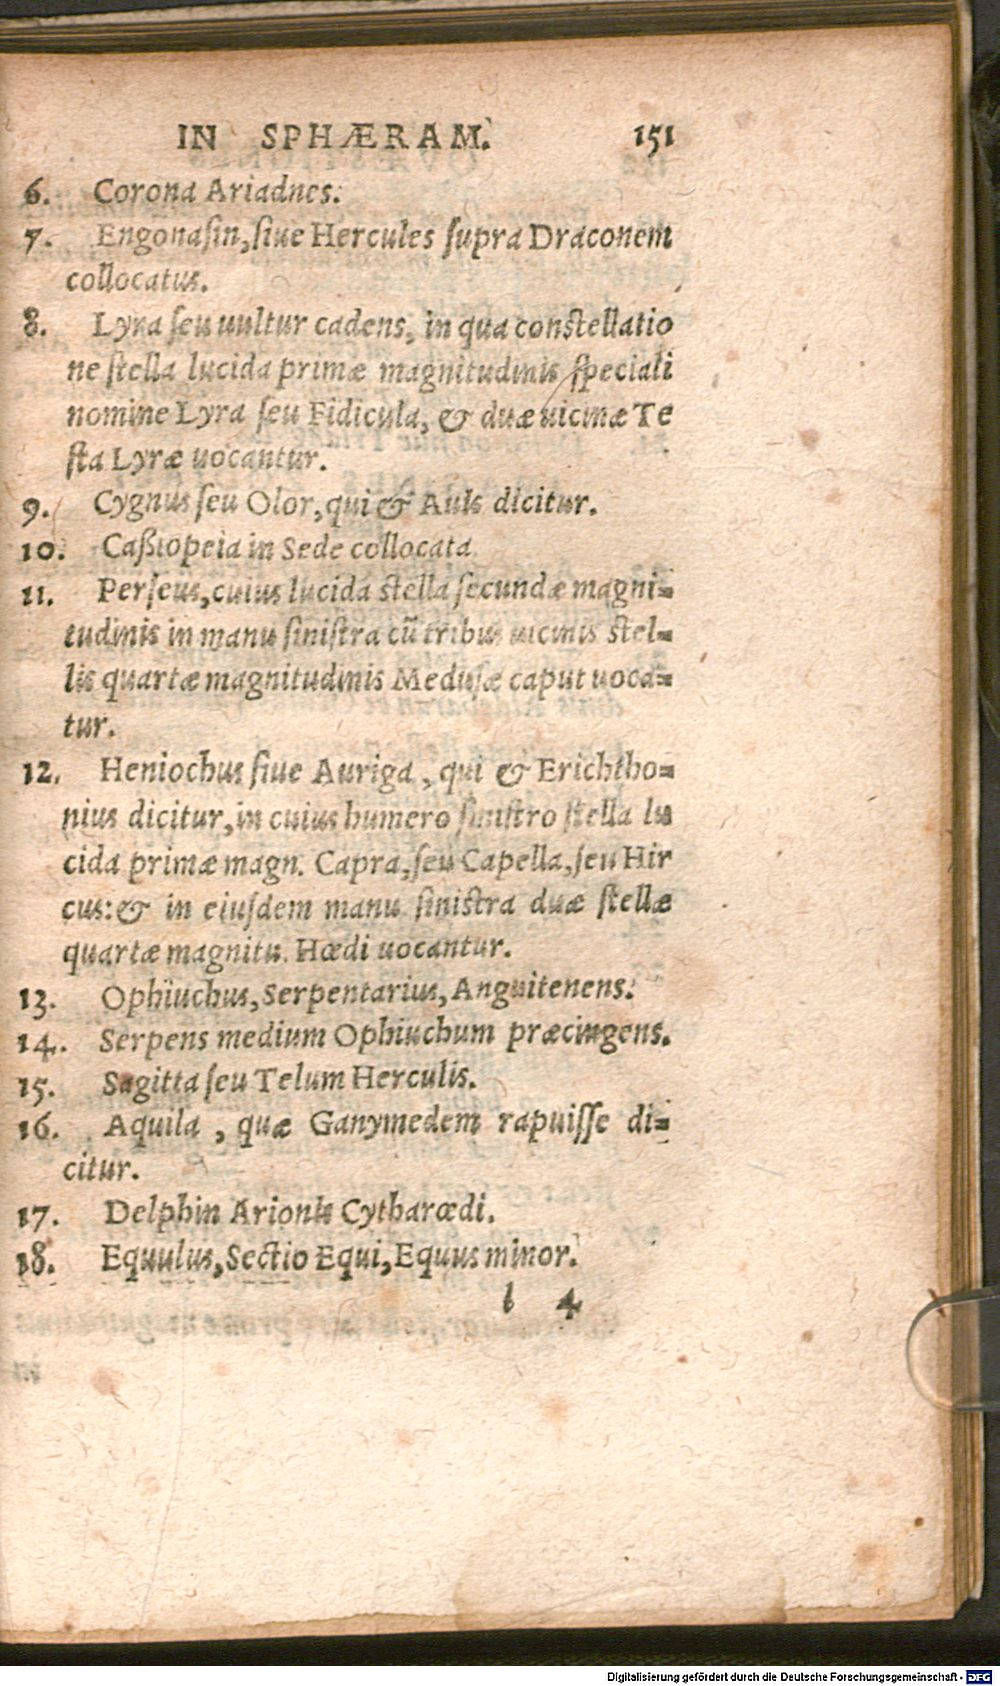 IN SPHÆRAM. 151
6. Corona Ariadnes.
7. Engonaſin, ſiue Hercules ſupra Draconem
collocatus.
8. Lyra ſeu uultur cadens, in qua conſtellatio
ne ſtella lucida primæ magnitudinis ſpeciali
nomine Lyra ſeu Fidicula, & duæ uicinæ Te
ſta Lyræ uocantur.
9. Cygnus ſeu Olor, qui & Auis dicitur.
10. Caßiopeia in Sede collocata.
11. Perſeus, cuius lucida ſtella ſecundæ magni-
tudinis in manu ſiniſtra cũ tribus uicinis ſtel-
lis quartæ magnitudinis Meduſæ caput uoca-
tur.
12. Heniochus ſiue Auriga, qui & Erichtho-
nius dicitur, in cuius humero ſiniſtro ſtella lu
cida primæ magn. Capra, ſeu Capella, ſeu Hir
cus: & in eiuſdem manu ſiniſtra duæ ſtellæ
quartæ magnitu. Hœdi uocantur.
13. Ophiuchus, Serpentarius, Anguitenens.
14. Serpens medium Ophiuchum præcingens.
15. Sagitta ſeu Telum Herculis.
16. Aquila, quæ Ganymedem rapuiſſe di-
citur.
17. Delphin Arionis Cytharœdi.
18. Equulus, Sectio Equi, Equus minor.
l 4
Digitalisierung gefördert durch die Deutsche Forschungsgemeinschaft - DFG